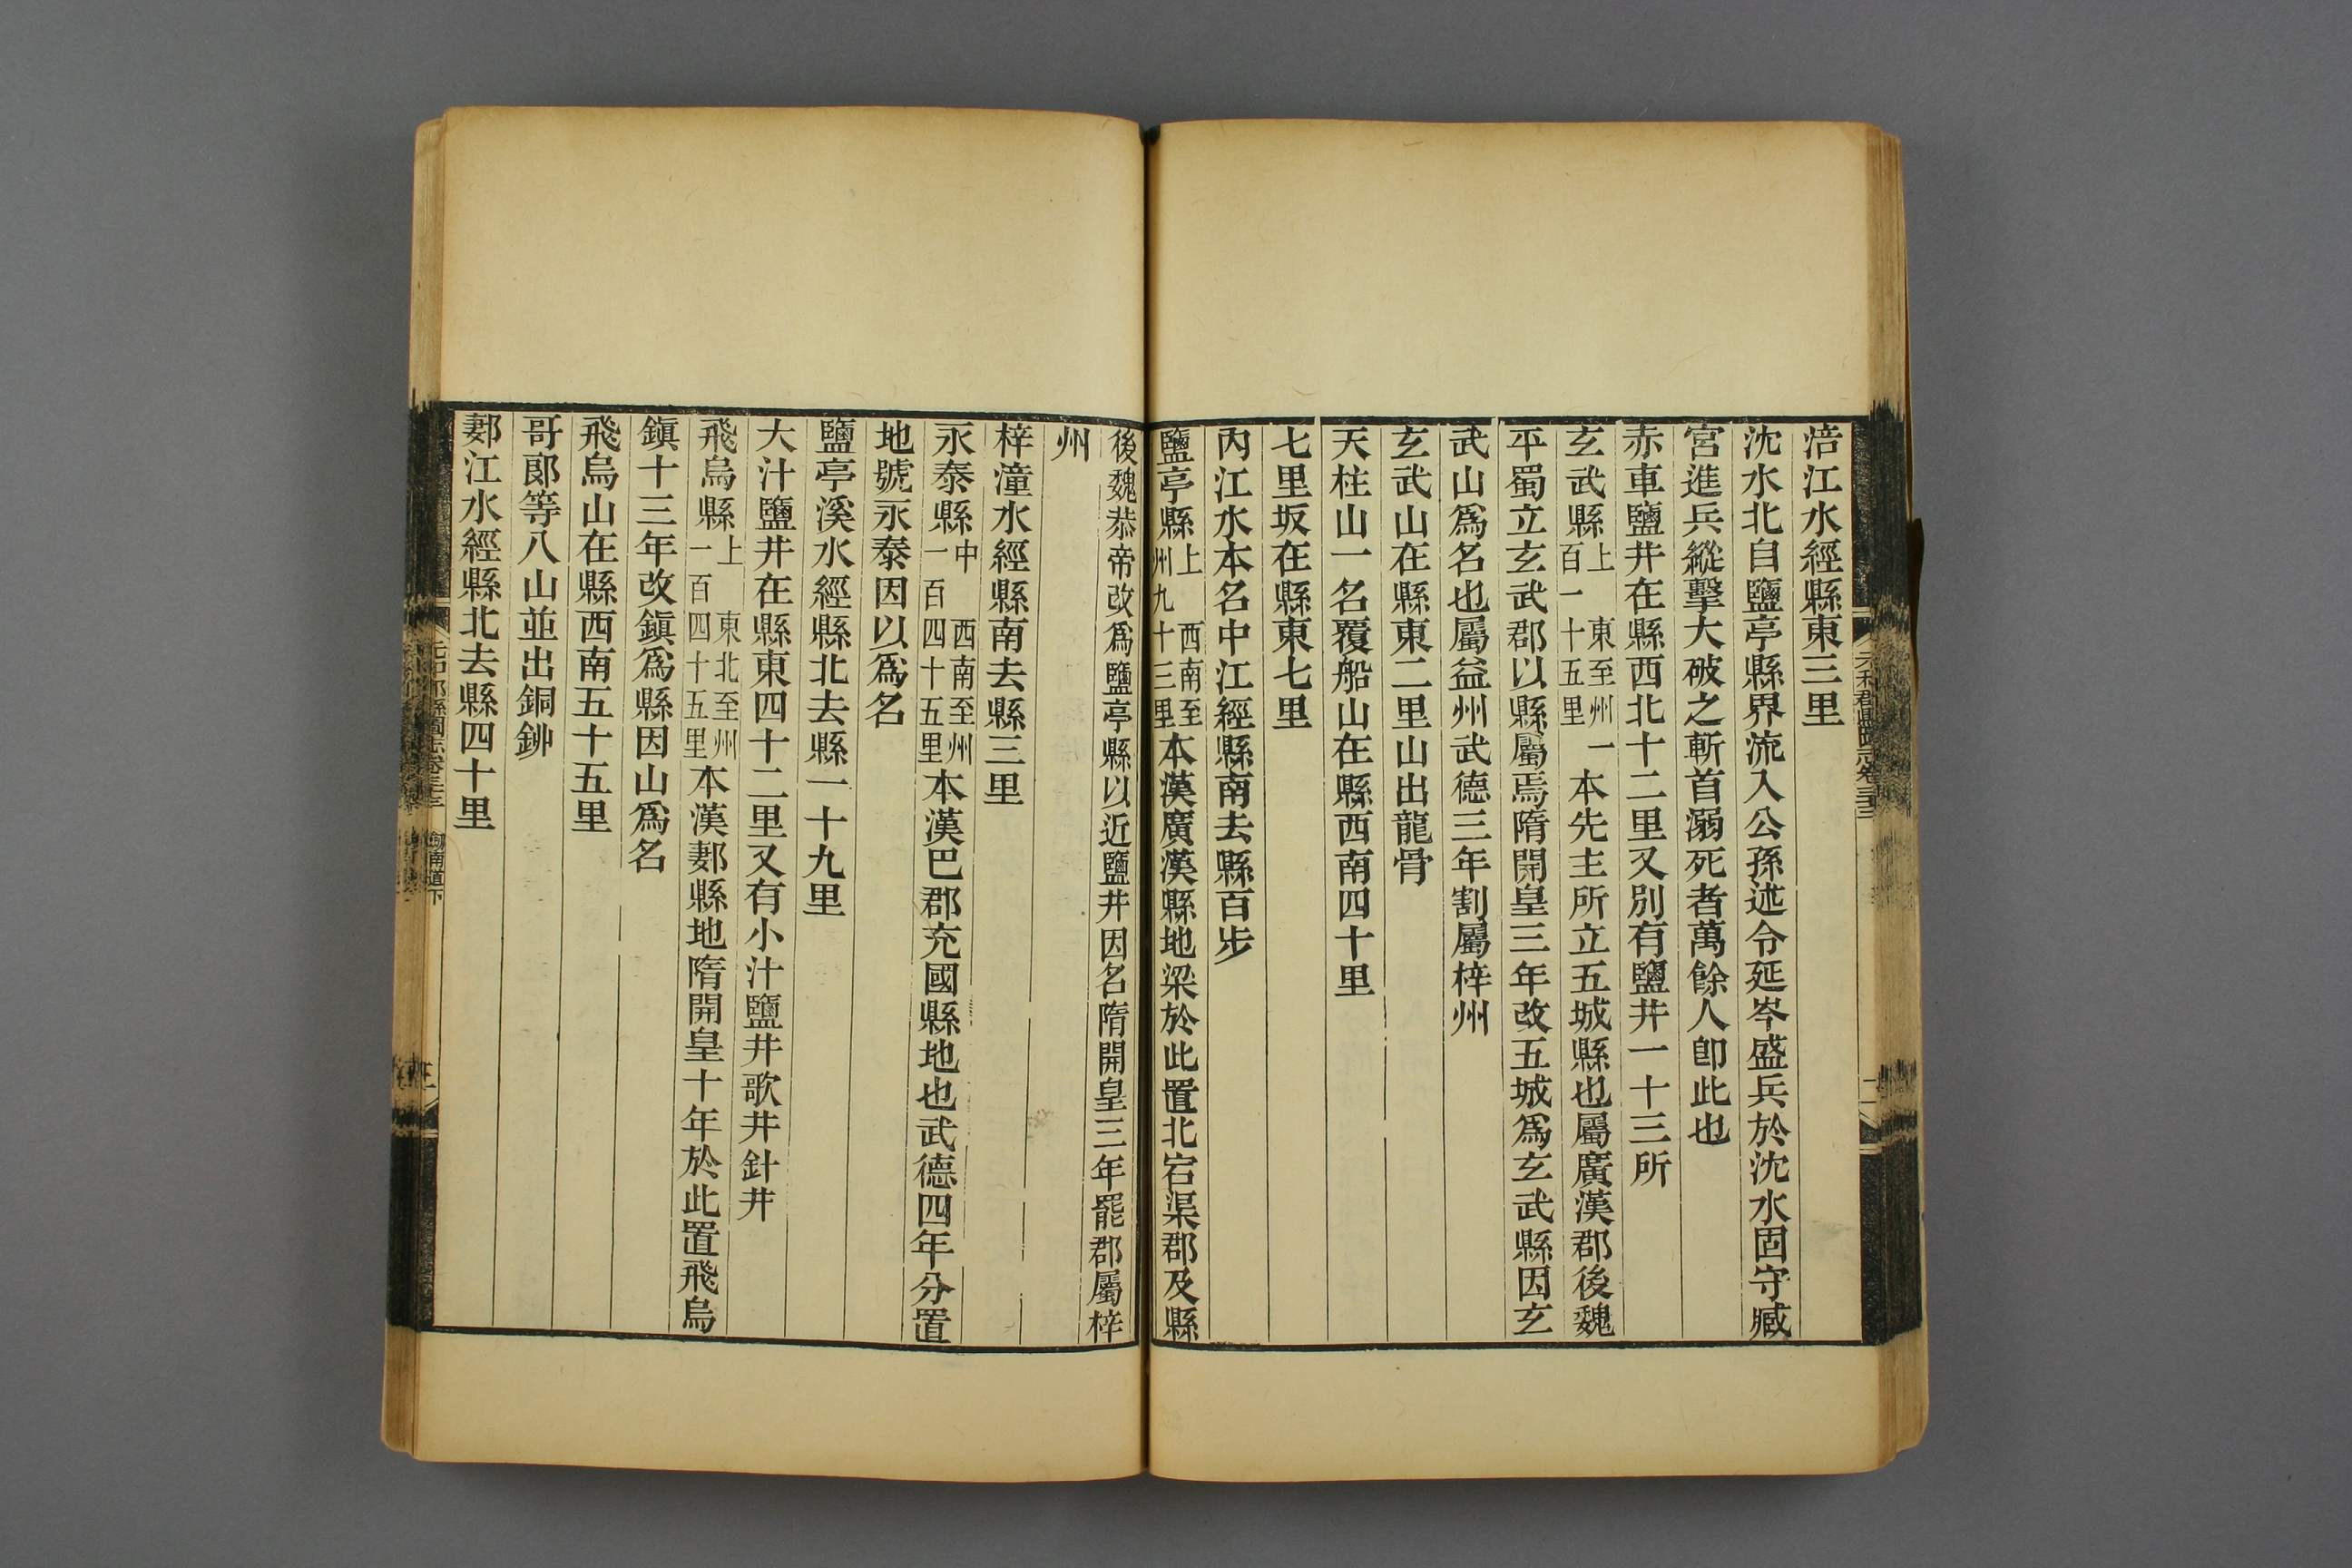 涪江水經縣東三里
沈水北自鹽亭縣界流入公孫述令延岑盛兵於沈水固守臧
宮進兵縱擊大破之斬首溺死者萬餘人卽此也
赤車鹽井在縣西北十二里又別有鹽井一十三所
玄武縣上 東至州一百一十五里 本先主所立五城縣也屬廣漢郡後魏
平蜀立玄武郡以縣屬焉隋開皇三年改五城爲玄武縣因玄
武山爲名也屬益州武德三年割屬梓州
玄武山在縣東二里山出龍骨
天柱山一名覆船山在縣西南四十里
七里坂在縣東七里
內江水本名中江經縣南去縣百步
鹽亭縣上 西南至州九十三里本漢廣漢縣地梁於此置北宕渠郡及縣
後魏恭帝改爲鹽亭縣以近鹽井因名隋開皇三年罷郡屬梓
州
梓潼水經縣南去縣三里
永泰縣中 西南至州一百四十五里本漢巴郡充國縣地也武德四年分置
地號永泰因以爲名
鹽亭溪水經縣北去縣一十九里
大汁鹽井在縣東四十二里又有小汁鹽井歌井針井
飛烏縣上 東北至州一百四十五里本漢郪縣地隋開皇十年於此置飛烏
鎭十三年改鎭爲縣因山爲名
飛烏山在縣西南五十五里
哥郎等八山並出銅鉚
郪江水經縣北去縣四十里
元和郡縣圖志卷三十三
二
元和郡縣圖志卷三十三 劒南道下
三